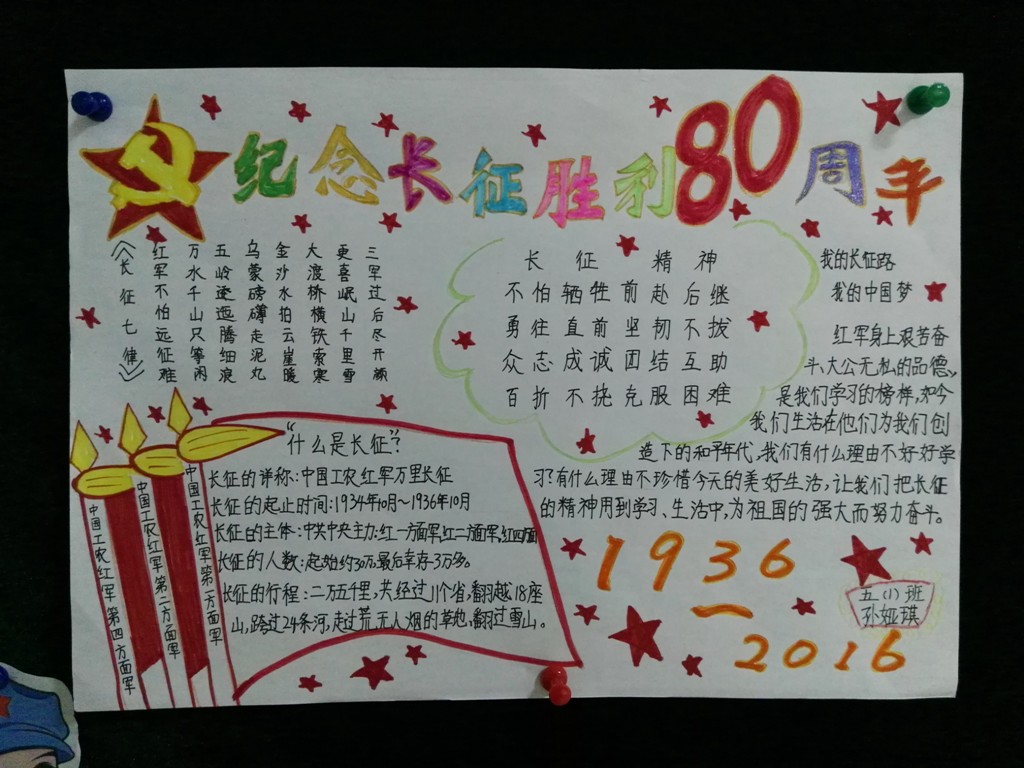 纪念长征胜利80周年
《长征七律》
红军不怕远征难
万水千山只等闲
五岭逶迤腾细浪
乌蒙磅礴走泥丸
金沙水拍云崖暖
大渡桥横铁索寒
更喜岷山千里雪
三军过后尽开颜
长征 精神
不怕牺牲前赴后继
勇往直前坚韧不拔
众志成诚团结互助
百折不挠克服困难
我的长征路
我的中国梦
红军身上艰苦奋
斗、大公无私的品德,
是我们学习的榜样,如今
我们生活在他们为我们创
造下的和平年代,我们有什么理由不好好学
习?有什么理由不珍惜今天的美好生活,让我们把长征
的精神用到学习、生活中,为祖国的强大而努力奋斗。
“什么是长征”?
长征的详称:中国工农红军万里长征
长征的起止时间:1934年10月~1936年10月
长征的主体:中共中央主力:红一方面军,红二方面军,红四方面
长征的人数:起始约30万最后幸存3万多。
长征的行程:二万五千里,共经过11个省,翻越18座
山,跨过24条河,走过荒无人烟的草地,翻过雪山。
中国工农红军第四方面军
中国工农红军第二方面军
中国工农红军第一方面军
1936
—
2016
五(1)班
孙娅琪